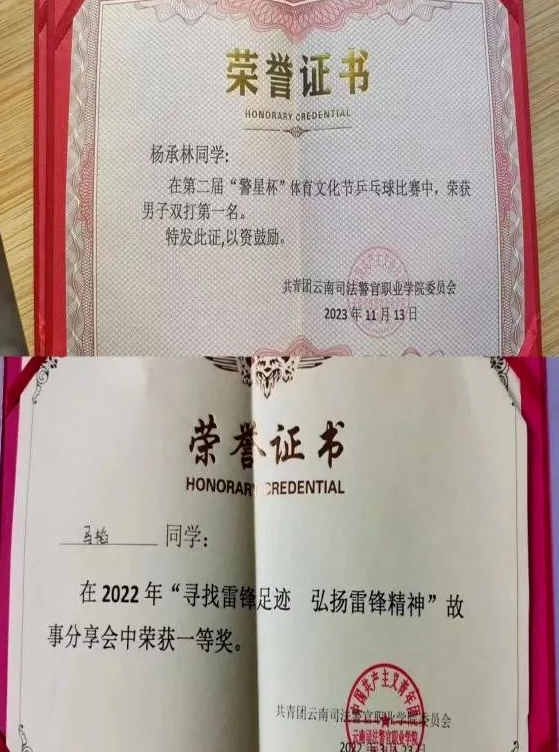 荣誉证书
HONORARY CREDENTIAL
杨承林同学:
在第二届“警星杯”体育文化节乒乓球比赛中，荣获
男子双打第一名。
特发此证,以资鼓励。
共青团云南司法警官职业学院委员会
2023 年 11 月 13 日
荣誉证书
HONORARY CREDENTIAL
同学:
在 2022 年“寻找雷锋足迹　弘扬雷锋精神”故
事分享会中荣获一等奖。
中国共产主义青年团
共青团云南司法警官职业学院委员会
云南司法警官职业学院